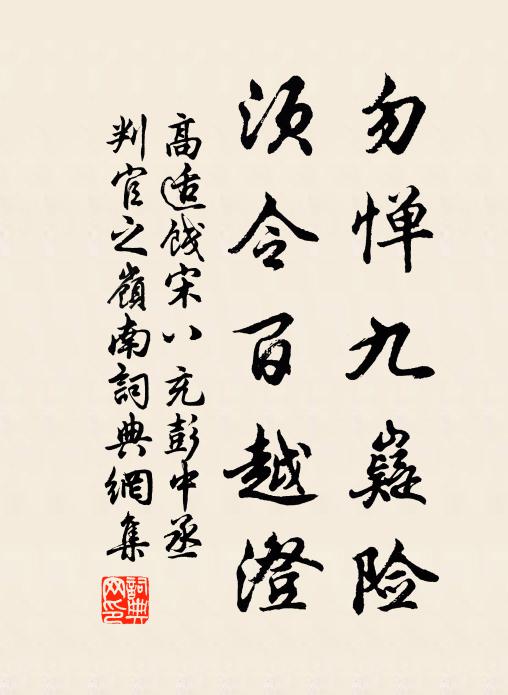 勿惮九嶷险
须令百越澄
高适饯宋八充彭中丞
判官之嶺南詞典網集
詞典
网印